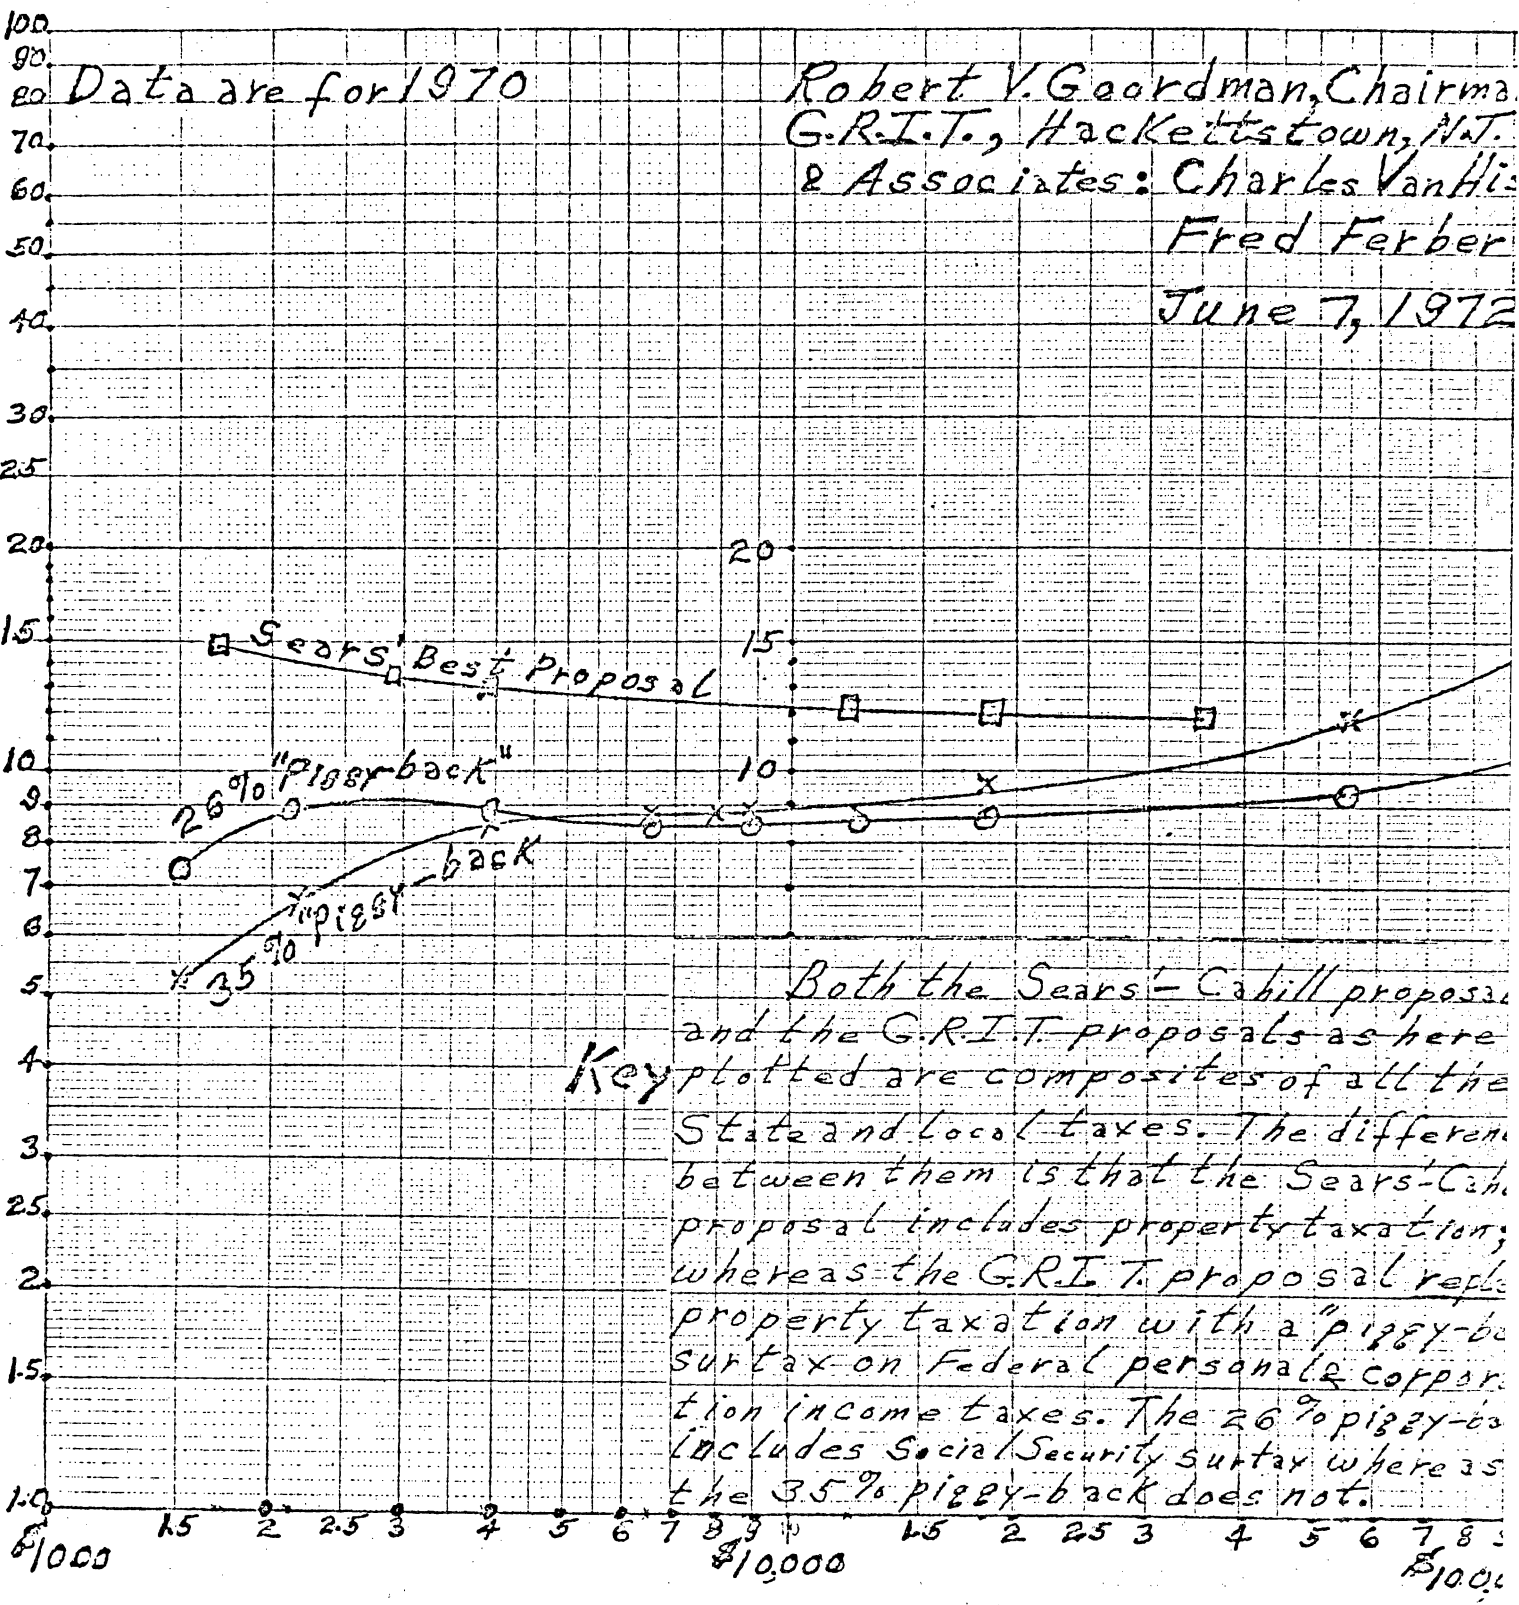 100
90
80
70
60
50
40
30
25
20
15
10
9
8
7
6
5
4
3
2.5
2
1.5
1.0
Data are for 1970
Robert V. Goordman, Chairma
G.R.I.T., Hackettstown, N.J.
& Associates: Charles VanHis
Fred Ferber
June 7, 1972
20
15
10
Sears' Best Proposal
26% "piggy-back"
35% "piggy-back
Key
Both the Sears'-Cahill proposal
and the G.R.I.T. proposals as here
plotted are composites of all the
State and Local taxes. The differen
between them is that the Sears'-Cah
proposal includes property taxation;
whereas the G.R.I.T. proposal repla
property taxation with a "piggy-ba
surtax on Federal personal & corpora
tion income taxes. The 26% piggy-ba
includes Social Security surtax whereas
the 35% piggy-back does not.
1.5 2 2.5 3 4 5 6 7 8 9 10 1.5 2 2.5 3 4 5 6 7 8
$1000 $10,000 $10,0